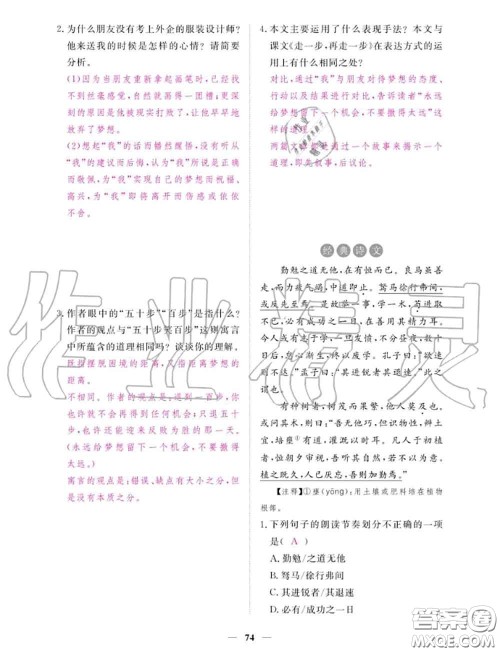 2. 为什么朋友没有考上外企的服装设计师？
他来送我的时候是怎样的心情？请简要
分析。
(1)因为当朋友重新拿起画笔时，已经找不
到丝毫感觉，自我就在一团糟；更
深刻的原因是他被现实打败了，让他早早地
放弃了梦想。
(2)想起“我”的话而幡然醒悟，没有听从
“我”的建议而后悔，认为“我”所说是正确
而敬佩，为“我”实现自己的梦想而祝福、
高兴，为“我”即将离开而伤感或依依
不舍。
3. 作者眼中的“五十步”“百步”是指什么？
作者的观点与“五十步笑百步”这则寓言
中所蕴含的道理相同吗？谈谈你的理解。
既指摆脱困境的距离，又指距离梦想的
的距离。
不相同。作者的观点是，进一百步，你
也许就不会再得到任何机会；只退五十
步，也许还能迎来成功与梦想。
(永远给梦想留下一个机会，不要撤得
太远。)
寓言的观点是：错误、缺点有大小之分，但
没有本质之分。
4. 本文主要运用了什么表现手法？本文与
课文《走一步，再走一步》在表达方式的运
用上有什么相同之处？
对比，通过“我”与朋友对待梦想的态度、
行动以及结果进行对比，告诉读者“永远
给梦想留下一个机会，不要撤得太远”这
样的道理。
两篇文章都通过一个故事来揭示一个
道理，即先叙事，后议论。
经典诗文
勤勉之道无他，在有恒而已。良马虽善
走，而力疲气竭，中道即止。驽马徐行弗间，
或反先至焉。是故举一事，学一术，苟进取
不已，必有成功之一日，在善用其精力耳。
今人或有志于学，一旦发愤，不分昼夜，数十
日后，怠心渐生，终以废学。孔子曰：“欲速
则不达。”孟子曰：“其进锐者其退速。”此之
谓也。
有种树者，树茂而果繁，他人莫及也。
或问其术，则曰：“吾无他巧，但识物性，辨土
宜，培壅①有道，灌溉以时耳。凡人于初植
者，恒朝夕审视，吾听其自然，若若不与焉。
植之既久，人已厌忘，吾则加勤焉。”
【注释】①壅(yōng)：用土壤或肥料培在植物
根部。
1. 下列句子的朗读节奏划分不正确的一项
是( A )
A. 勤勉/之道无他
B. 驽马/徐行弗间
C. 其进锐者/其退速
D. 必有/成功之一日
74
作业精灵
答案圈
MXQE.COM